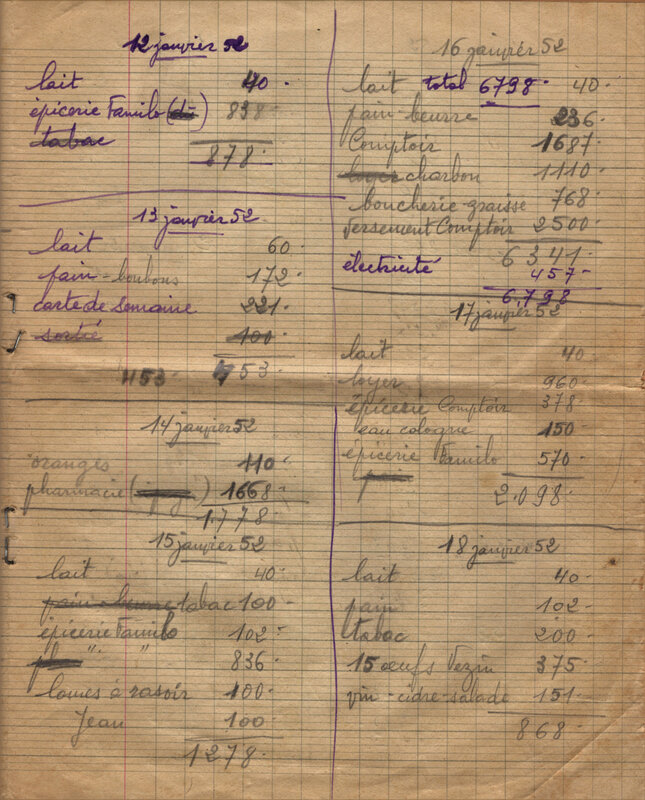 12 janvier 52
lait 40
épicerie Familo (dû) 838
tabac
878
13 janvier 52
lait 60
pain-bonbons 172
carte de semaine 221
sortie 100
453 453
14 janvier 52
oranges 110
pharmacie ( ) 1668
1.778
15 janvier 52
lait 40
pain-beurre tabac 100
épicerie Familo 102
" " 836
lames à rasoir 100
Jean 100
1278
16 janvier 52
lait total 6798 40
pain-beurre 236
Comptoir 1687
loyer charbon 1110
boucherie-graisse 768
versement Comptoir 2500
6341
électricité 457
6.798
17 janvier 52
lait 40
loyer 960
épicerie Comptoir 378
eau cologne 150
épicerie Familo 570
2.098
18 janvier 52
lait 40
pain 102
tabac 200
15 oeufs Vezin 375
vin-cidre-salade 151
868